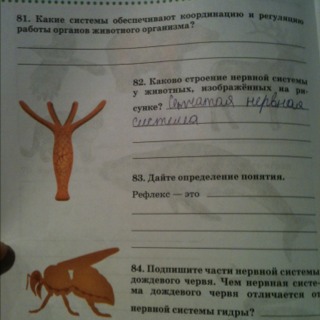 81. Какие системы обеспечивают координацию и регуляцию
работы органов животного организма?
82. Каково строение нервной системы
у животных, изображённых на ри-
сунке? Сетчатая нервная
система
83. Дайте определение понятия.
Рефлекс — это
84. Подпишите части нервной системы
дождевого червя. Чем нервная систе-
ма дождевого червя отличается от
нервной системы гидры?